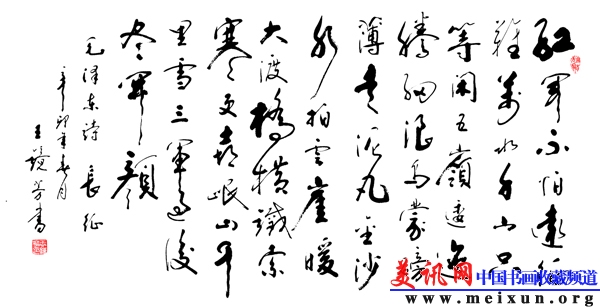 红军不怕遠征
難萬水千山只
等闲五嶺逶迤
腾细浪乌蒙旁
薄走泥丸金沙
水拍云崖暖
大渡橋横鐵索
寒更喜岷山千
里雪三军过後
尽開颜
毛泽东诗 長征
辛卯年春月
美讯网 中国书画收藏频道
www.meixun.org